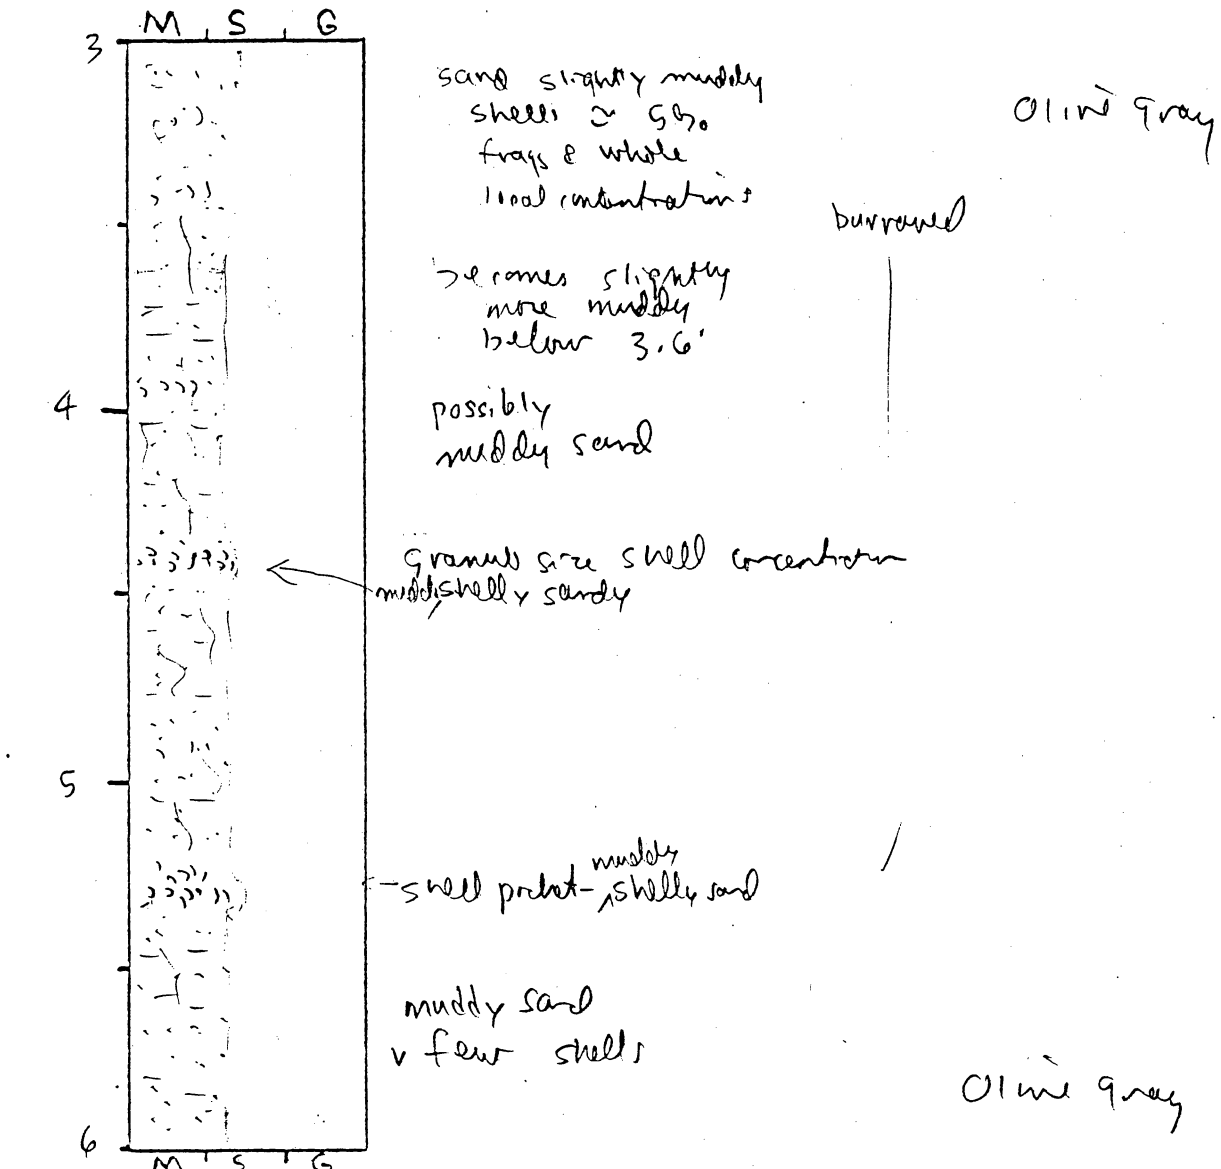 M S G
3
sand slightly muddy
shells ≃ 5%
frags & whole
local concentrations
Olive Gray
burrowed
becomes slightly
more muddy
below 3.6'
4
possibly
muddy sand
Granule size shell concentration
muddy shelly sandy
5
shell pocket - muddy shelly sand
muddy sand
v few shells
Olive Gray
6
M S G